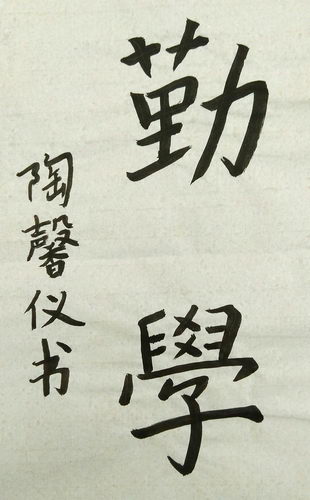 勤學
陶馨仪书